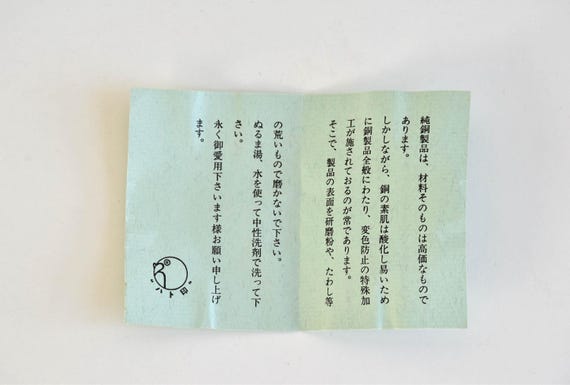 純銅製品は、材料そのものは高価なもので
あります。
しかしながら、銅の素肌は酸化し易いため
に銅製品全般にわたり、変色防止の特殊加
工が施されておるのが常であります。
そこで、製品の表面を研磨粉や、たわし等
の荒いもので磨かないで下さい。
ぬるま湯、水を使って中性洗剤で洗って下
さい。
永く御愛用下さいます様お願い申し上げ
ます。
ハト印